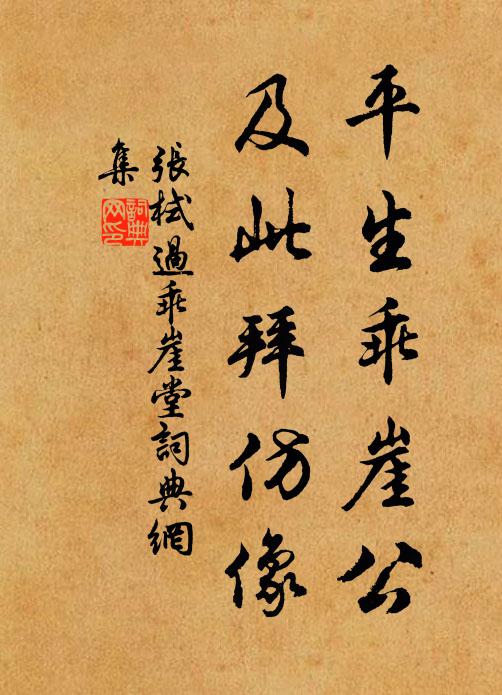 平生乖崖公
及此拜仿像
張栻過乖崖堂詞典網
集
詞典
网印